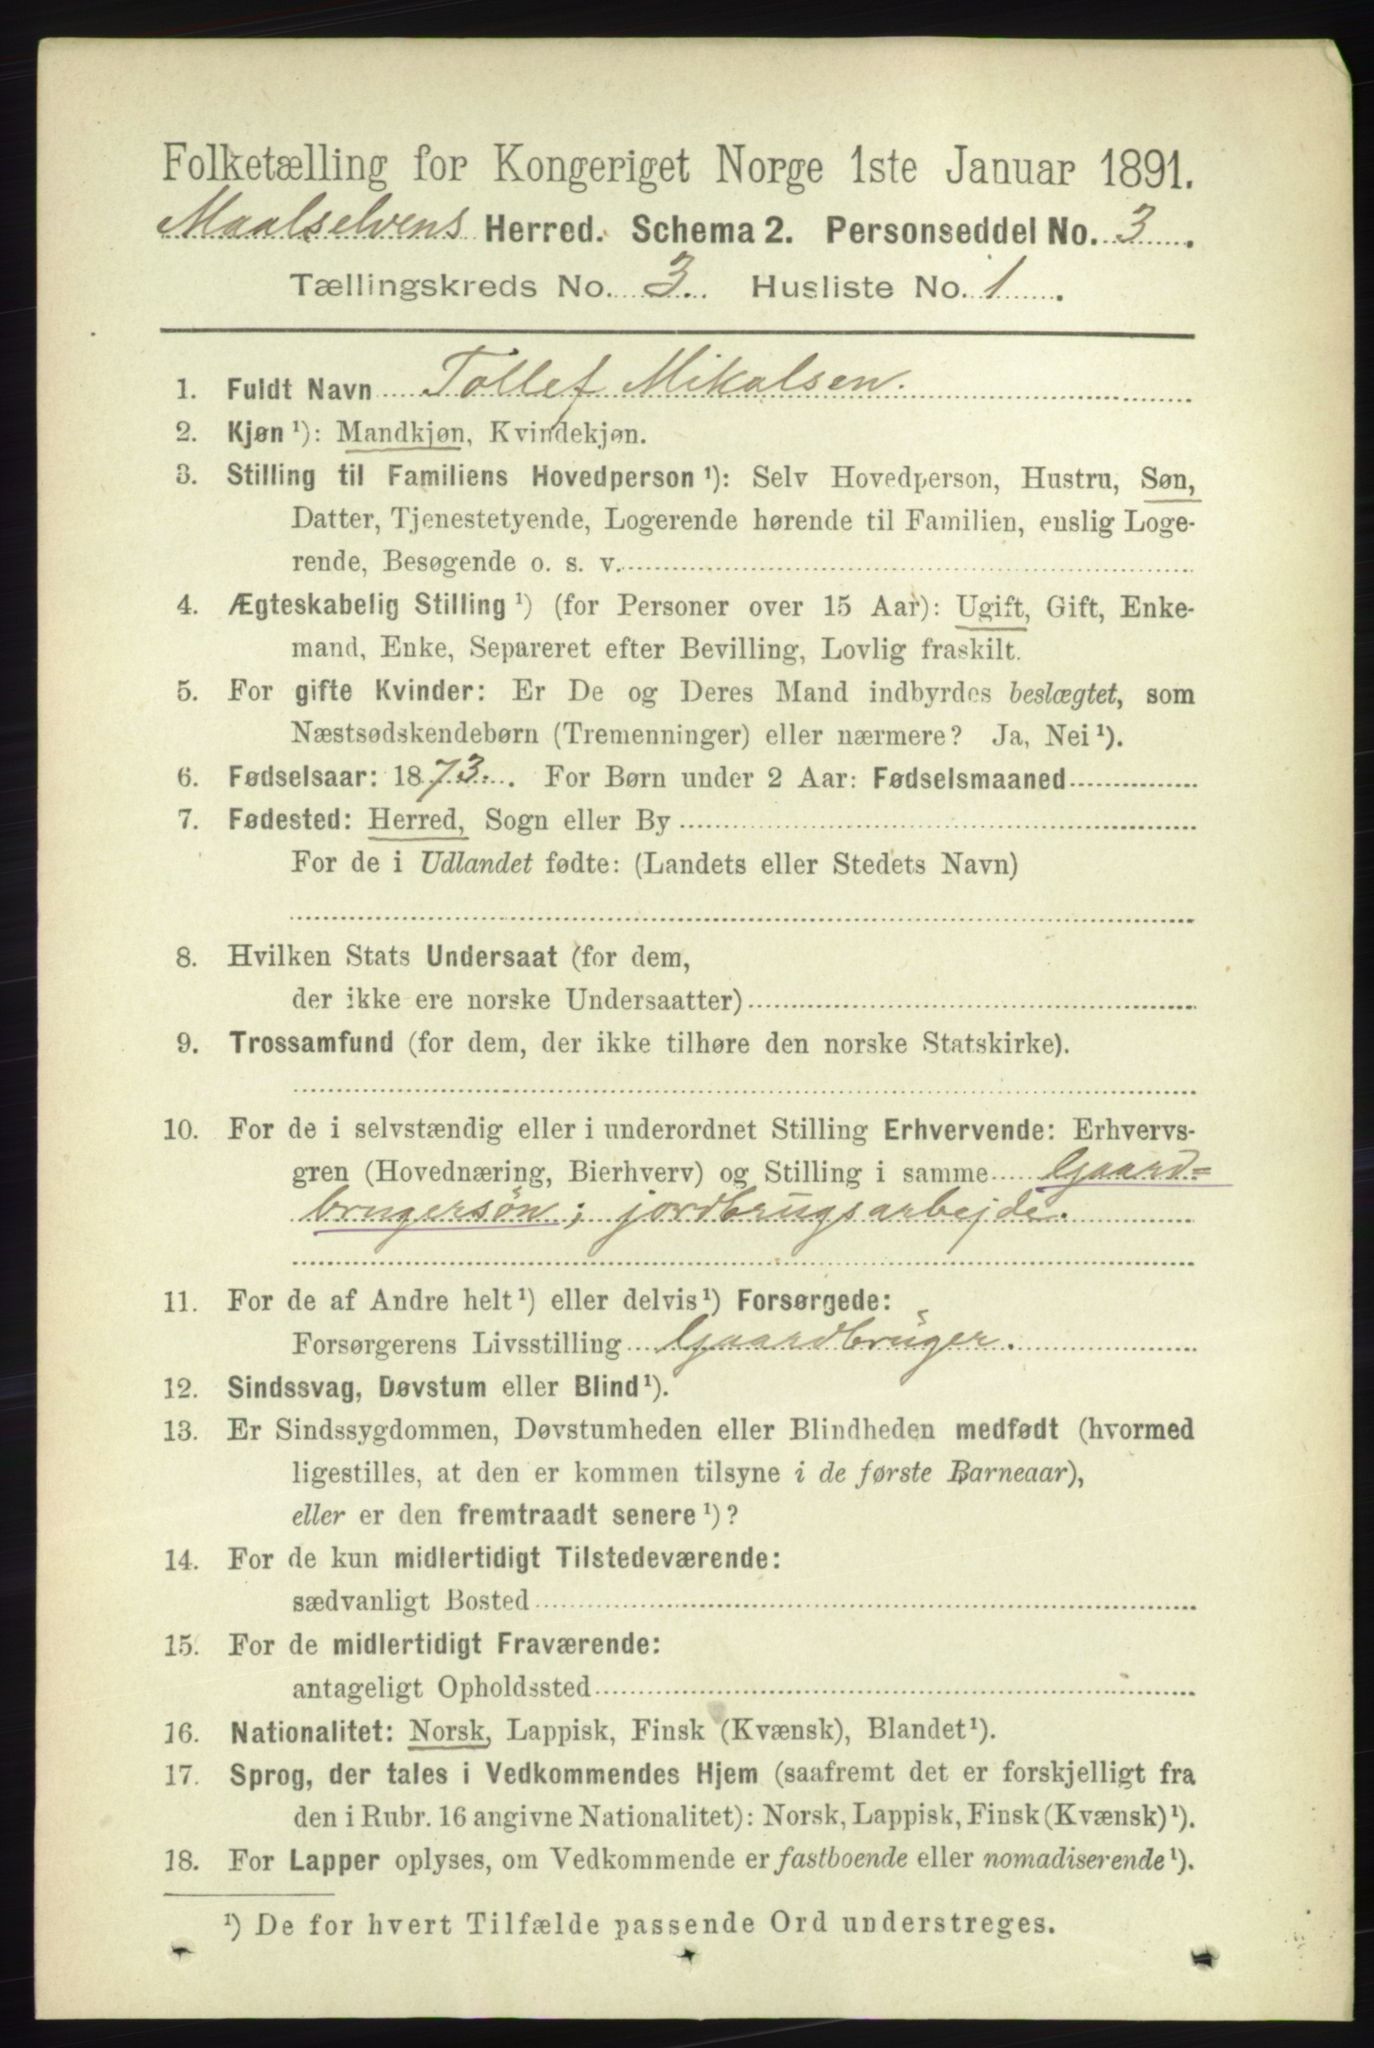 Folketælling for Kongeriget Norge 1ste Januar 1891.
Maalselvens Herred. Schema 2. Personseddel No. 3.
Tællingskreds No. 3. Husliste No. 1.
1. Fuldt Navn Tollef Mikalsen.
2. Kjøn¹): Mandkjøn, Kvindekjøn.
3. Stilling til Familiens Hovedperson¹): Selv Hovedperson, Hustru, Søn,
Datter, Tjenestetyende, Logerende hørende til Familien, enslig Loge-
rende, Besøgende o. s. v.
4. Ægteskabelig Stilling¹) (for Personer over 15 Aar): Ugift, Gift, Enke-
mand, Enke, Separeret efter Bevilling, Lovlig fraskilt.
5. For gifte Kvinder: Er De og Deres Mand indbyrdes beslægtet, som
Næstsødskendebørn (Tremenninger) eller nærmere? Ja, Nei¹).
6. Fødselsaar: 1873. For Børn under 2 Aar: Fødselsmaaned
7. Fødested: Herred, Sogn eller By
For de i Udlandet fødte: (Landets eller Stedets Navn)
8. Hvilken Stats Undersaat (for dem,
der ikke ere norske Undersaatter)
9. Trossamfund (for dem, der ikke tilhøre den norske Statskirke).
10. For de i selvstændig eller i underordnet Stilling Erhvervende: Erhvervs-
gren (Hovednæring, Bierhverv) og Stilling i samme Gaard=
brugersøn; jordbrugsarbejde.
11. For de af Andre helt¹) eller delvis¹) Forsørgede:
Forsørgerens Livsstilling Gaardbruger.
12. Sindssvag, Døvstum eller Blind¹).
13. Er Sindssygdommen, Døvstumheden eller Blindheden medfødt (hvormed
ligestilles, at den er kommen tilsyne i de første Barneaar),
eller er den fremtraadt senere¹)?
14. For de kun midlertidigt Tilstedeværende:
sædvanligt Bosted
15. For de midlertidigt Fraværende:
antageligt Opholdssted
16. Nationalitet: Norsk, Lappisk, Finsk (Kvænsk), Blandet¹).
17. Sprog, der tales i Vedkommendes Hjem (saafremt det er forskjelligt fra
den i Rubr. 16 angivne Nationalitet): Norsk, Lappisk, Finsk (Kvænsk)¹).
18. For Lapper oplyses, om Vedkommende er fastboende eller nomadiserende¹).
¹) De for hvert Tilfælde passende Ord understreges.